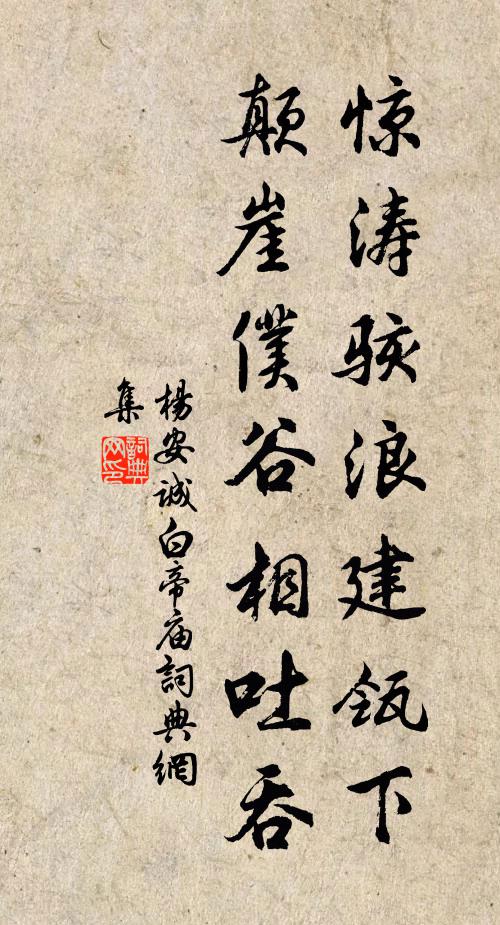 惊涛骇浪建瓴下
颠崖僕谷相吐吞
楊安诚白帝庙詞典網
集
詞典
网印